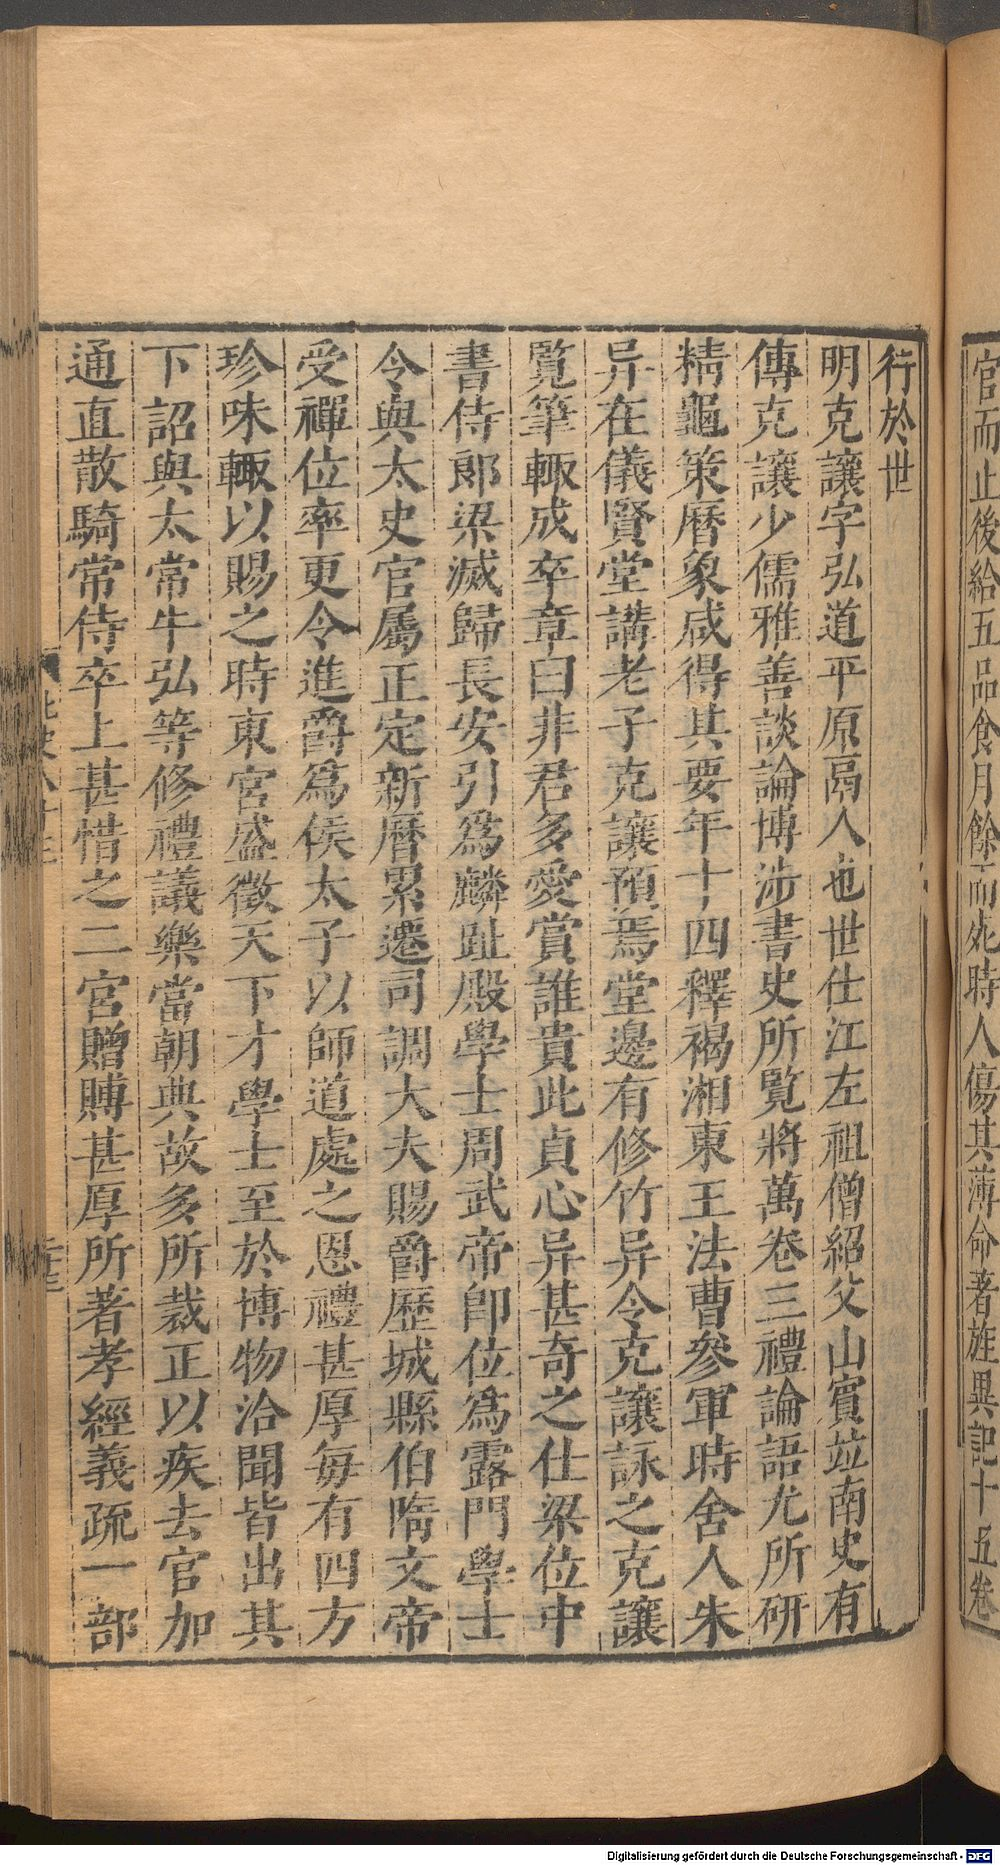 官而止後給五品食月餘而死時人傷其薄命著旌異記十五卷
行於世
明克讓字弘道平原鬲人也世仕江左祖僧紹父山賓竝南史有
傳克讓少儒雅善談論博涉書史所覽將萬卷三禮論語尤所研
精龜策曆象咸得其要年十四釋褐湘東王法曹參軍時舍人朱
异在儀賢堂講老子克讓預焉堂邊有修竹异令克讓詠之克讓
覽筆輙成卒章曰非君多愛賞誰貴此貞心异甚奇之仕梁位中
書侍郎梁滅歸長安引爲麟趾殿學士周武帝卽位爲露門學士
令與太史官屬正定新曆累遷司調大夫賜爵歷城縣伯隋文帝
受禪位率更令進爵爲侯太子以師道處之恩禮甚厚每有四方
珍味輙以賜之時東宮盛徵天下才學士至於博物洽聞皆出其
下詔與太常牛弘等修禮議樂當朝典故多所裁正以疾去官加
通直散騎常侍卒上甚惜之二宮贈賻甚厚所著孝經義疏一部
Digitalisierung gefördert durch die Deutsche Forschungsgemeinschaft - DFG